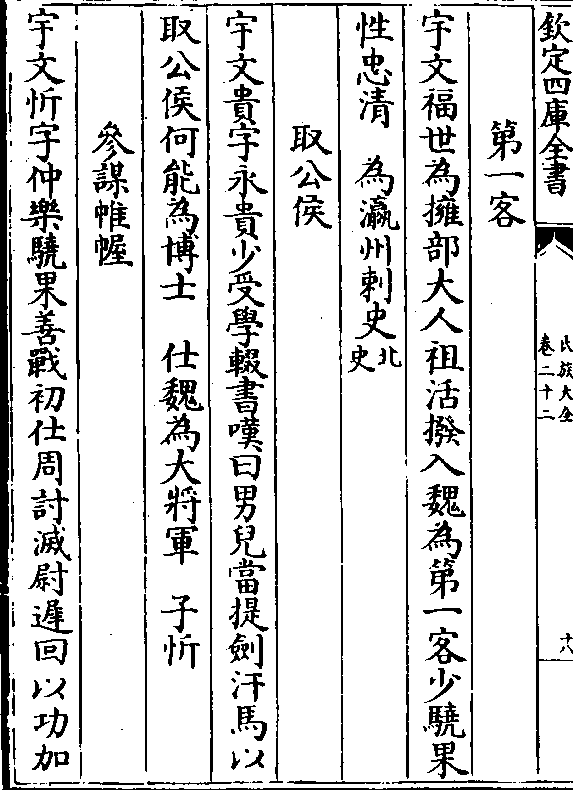 欽定四庫全書
氏族大全
卷二十二
十八
第一客
宇文福世為擁部大人祖活撥入魏為第一客少驍果
性忠清 為瀛州刺史北史
取公侯
宇文貴字永貴少受學輟書嘆曰男兒當提劍汗馬以
取公侯何能為博士 仕魏為大將軍 子忻
參謀帷幄
宇文忻字仲樂驍果善戰初仕周討滅尉遲回以功加